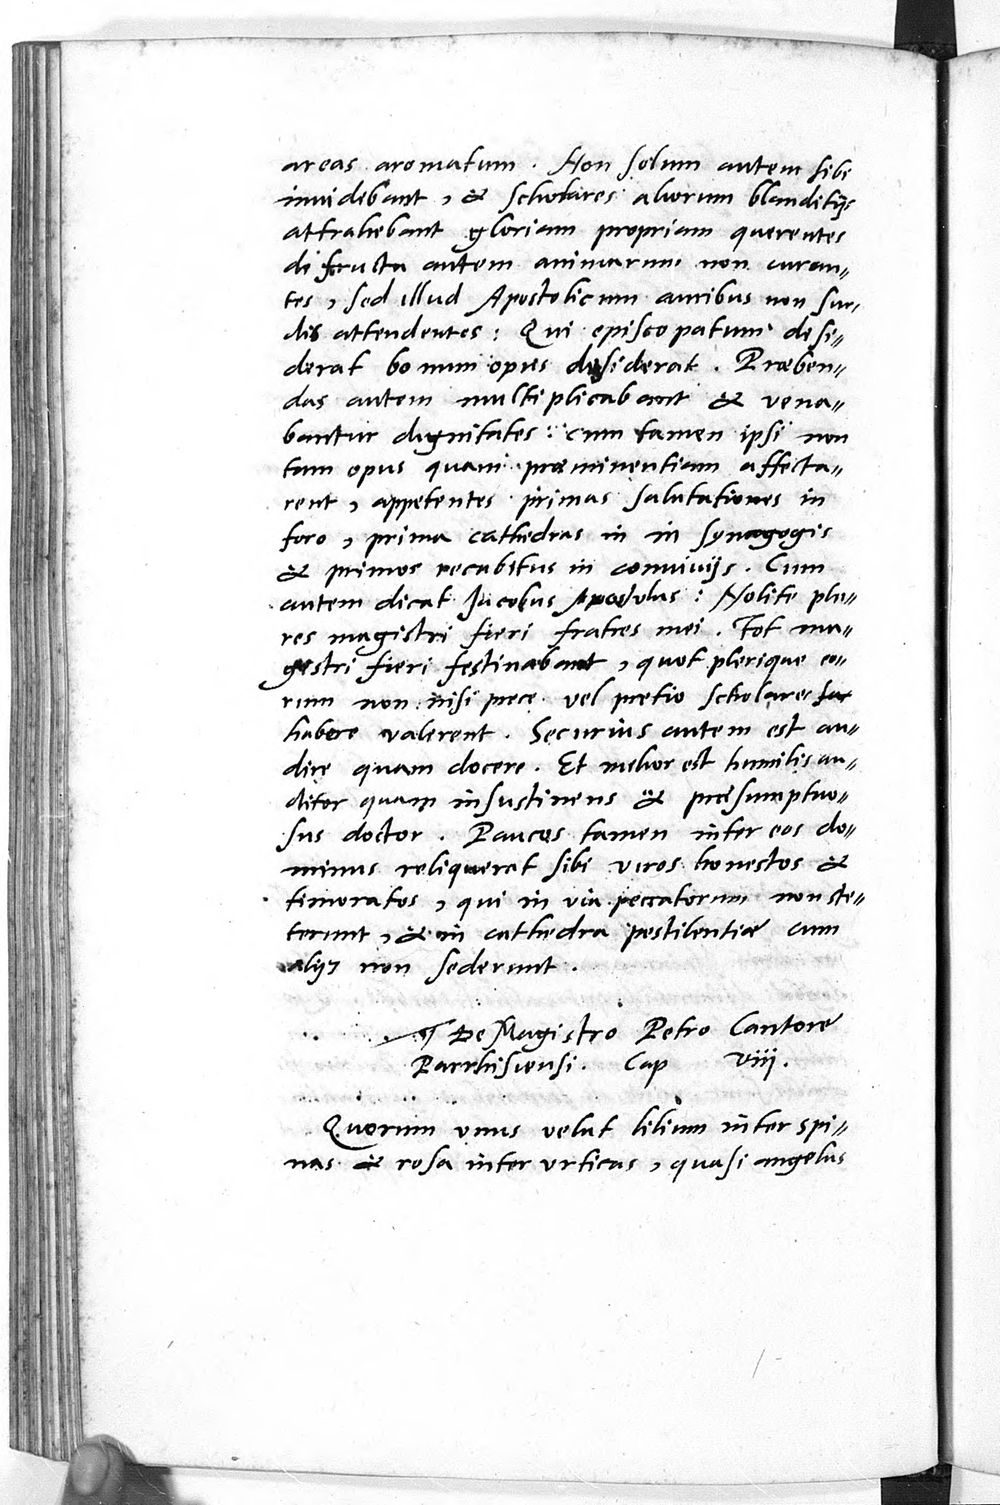 areas aromatum . Non solum autem sibi
inuidebant , & scholares aliorum blanditijs
attrahebant gloriam propriam querentes
de fructu autem animarum non curan〃
tes , sed illud Apostolicum auribus non sur〃
dis attendentes : Qui episcopatum desi〃
derat bonum opus desiderat . Præben〃
das autem multiplicabant & vena〃
bantur dignitates : cum tamen ipsi non
tam opus quam præminentiam affecta〃
rent , appetentes primas salutationes in
foro , prima cathedras in in synagogis
& primos recubitus in conuiuijs . Cum
autem dicat Jacobus Apostolus : Nolite plu〃
res magistri fieri fratres mei . Tot ma〃
gistri fieri festinabant , quot plerique eo〃
rum non nisi prece vel pretio scholares
habere valerent . Securius autem est au〃
dire quam docere . Et melior est humilis au〃
ditor quam insustinens & præsumptuo〃
sus doctor . Paucos tamen inter eos do〃
minus reliquerat sibi viros honestos &
timoratos , qui in via peccatorum non ste〃
terunt , & in cathedra pestilentiæ cum
alijs non sederunt .
¶ De Magistro Petro Cantore
Parrhisiensi . Cap viij .
Quorum vnus velut lilium inter spi〃
nas & rosa inter vrticas , quasi angelus